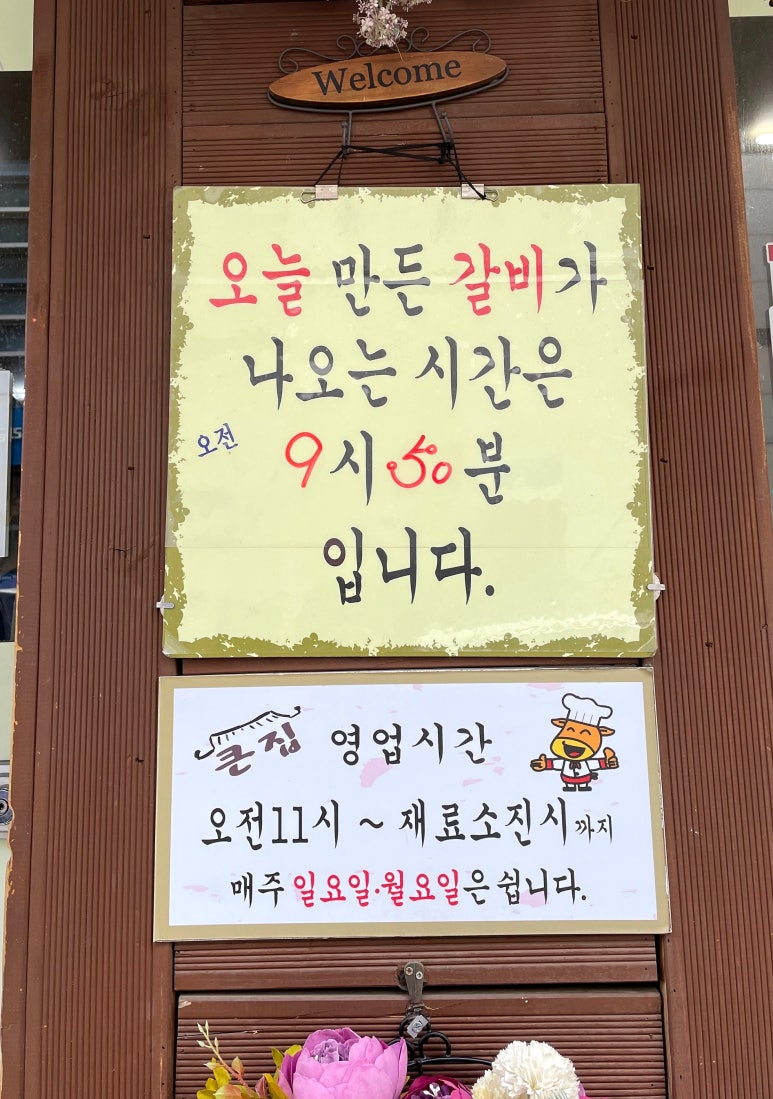 Welcome
오늘 만든 갈비가
나오는 시간은
오전 9시 50분
입니다.
큰집 영업시간
오전11시 ~ 재료소진시까지
매주 일요일·월요일은 쉽니다.